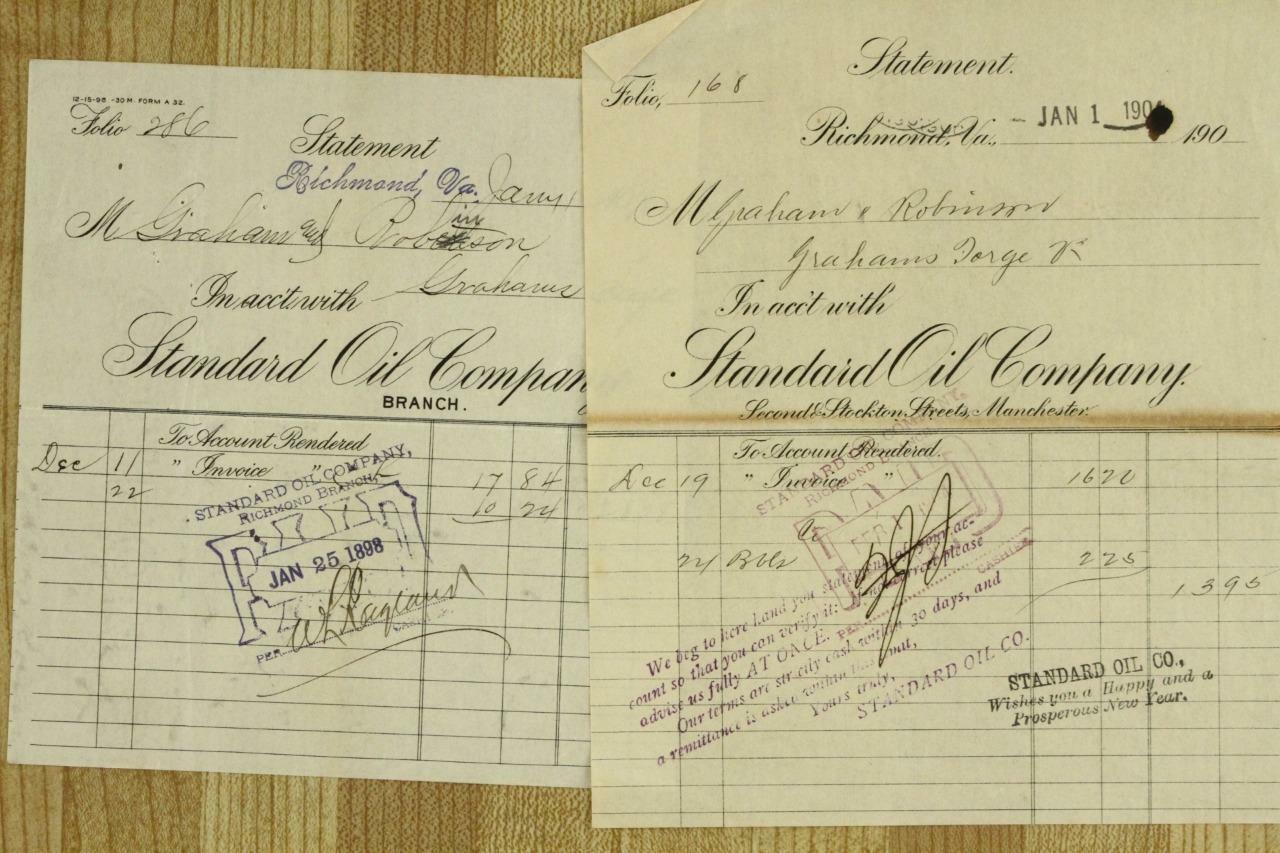 12-15-98 -30 M. FORM A 32.
Folio 286
Statement
Richmond, Va. Jany 1
M Graham and Robinson
In acc't with Grahams
Standard Oil Compan
BRANCH.
To Account Rendered
Dec 11 " Invoice " 17 84
22 10 24
STANDARD OIL COMPANY,
RICHMOND BRANCH.
PAID
JAN 25 1898
PER
CASHIER
Statement.
Folio, 168
Richmond, Va., JAN 1 190 190
M Graham & Robinson
Grahams Forge Va
In acc't with
Standard Oil Company.
Second & Stockton Streets, Manchester.
To Account Rendered.
Dec 19 " Invoice " 1620
Cr
24 Bbls 225
1395
STANDARD OIL COMPANY,
RICHMOND BRANCH
PAID
FEB
PER CASHIER
We beg to here hand you statement of your ac-
count so that you can verify it: If incorrect please
advise us fully AT ONCE.
Our terms are strictly cash within 30 days, and
a remittance is asked within this limit,
Yours truly,
STANDARD OIL CO.
STANDARD OIL CO.,
Wishes you a Happy and a
Prosperous New Year.